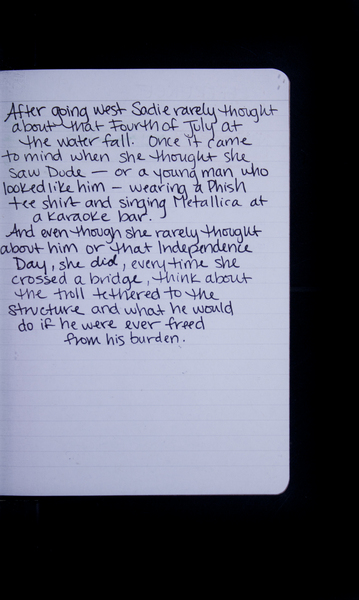 After going west Sadie rarely thought
about that Fourth of July at
the water fall. Once it came
to mind when she thought she
saw Dude — or a young man who
looked like him — wearing a Phish
tee shirt and singing Metallica at
a karaoke bar.
And even though she rarely thought
about him or that Independence
Day, she did, every time she
crossed a bridge, think about
the troll tethered to the
structure and what he would
do if he were ever freed
from his burden.